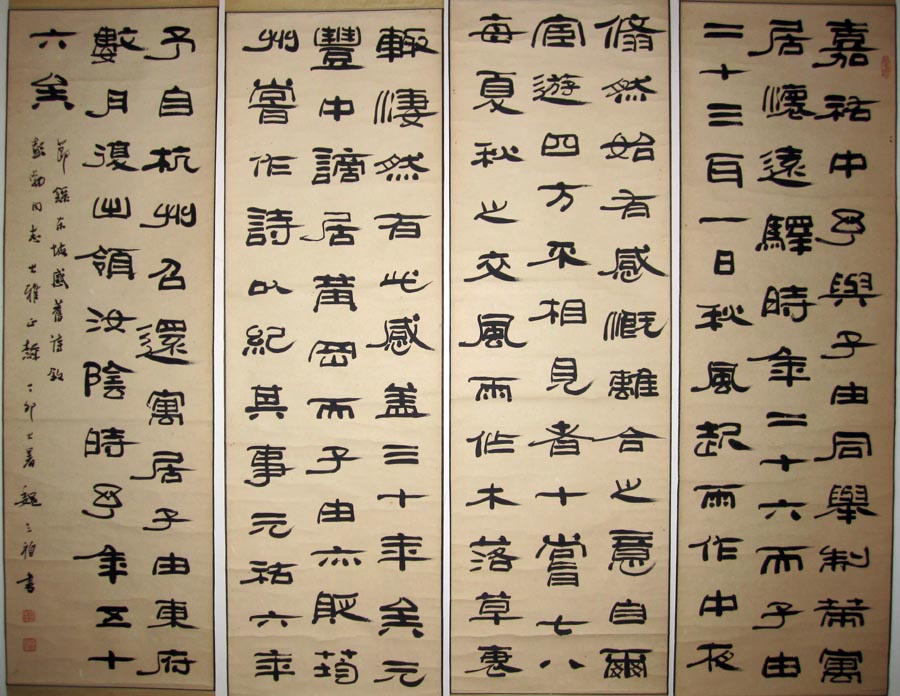 嘉祐中予與子由同舉制策寓
居懷遠驛時年二十六而子由
二十三耳一日秋風起雨作中夜
翛然始有感慨離合之意自爾
宦遊四方不相見者十嘗七八
每夏秋之交風雨作木落草衰
輒淒然有此感蓋三十年矣元
豐中謫居黃岡而子由亦貶筠
州嘗作詩以紀其事元祐六年
予自杭州召還寓居子由東府
數月復出領汝陰時予年五十
六矣
節錄東坡感舊詩敘
彭勃同志大雅正 丁卯大暑魏之禎書